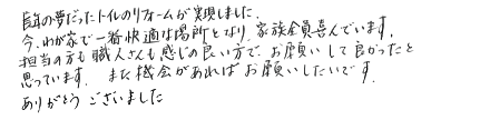 長年の夢だったトイレのリフォームが実現しました。
今、わが家で一番快適な場所となり、家族全員喜んでいます。
担当の方も職人さんも感じの良い方で、お願いして良かったと
思っています。 また機会があればお願いしたいです。
ありがとうございました